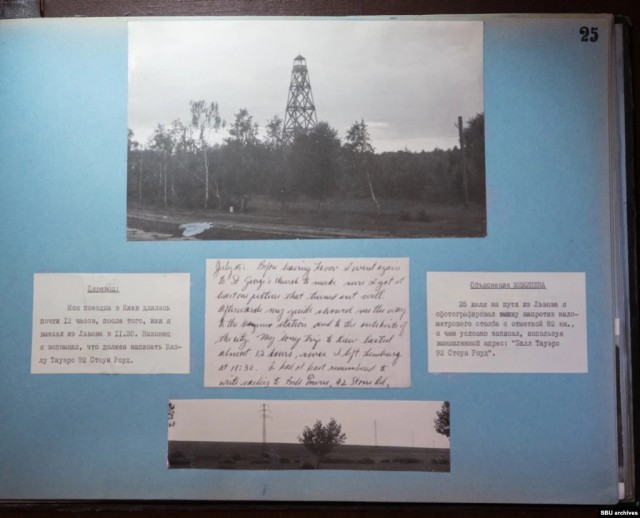 25
Перевод:
Моя поездка в Киев длилась
почти 12 часов, после того, как я
выехал из Львова в 11.30. Наконец
я вспомнил, что должен написать Бел-
лу Тауэрс 92 Стоун Роуд.
July 25. Before leaving Lvov I went again
to St George's church to make sure I got at
least one picture that turned out well.
Afterwards my guide showed me the way
to the station and to the outskirts of
the city. My long trip to Kiev lasted
almost 12 hours, since I left Lemburg
at 11:30. I had at last remembered to
write to Bell Towers, 92 Stone Rd,
Объяснения
25 июля на пути из Львова я
сфотографировал вышку напротив кило-
метрового столба с отметкой 92 км.,
о чем условно записал, используя
вымышленный адрес: "Белл Тауэрс
92 Стоун Роуд".
SBU archives